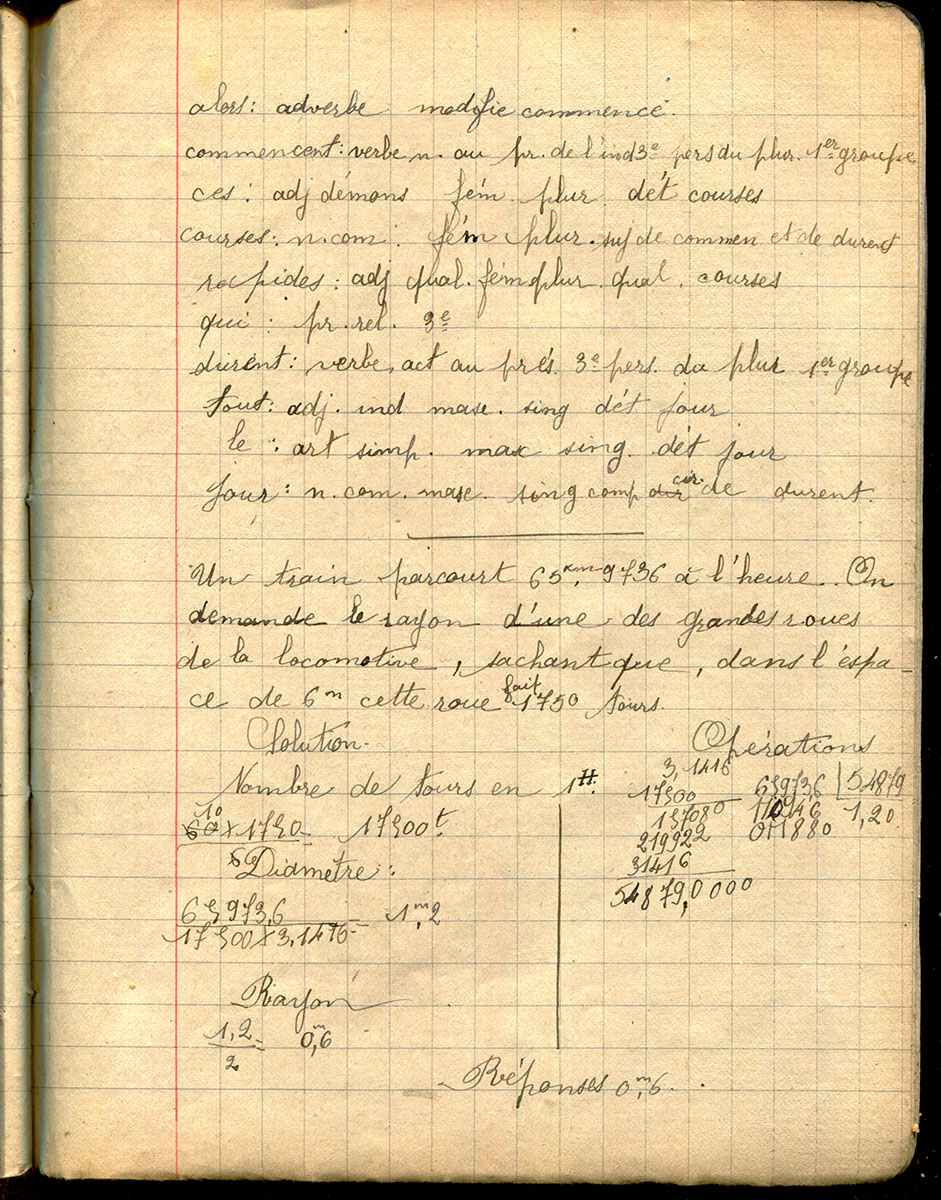 alors: adverbe modifie commence.
commencent: verbe n. au pr. de l'ind 3e pers du plur. 1er groupe
ces: adj démons fém. plur. dét courses
courses: n. com. fém plur. suj de commen et de durent
rapides: adj qual. fém plur. qual. courses
qui: pr. rel. 3e
durent: verbe, act au prés. 3e pers. du plur 1er groupe
tout: adj. ind masc. sing dét jour
le: art simp. masc sing. dét jour
jour: n. com. masc. sing comp dir cir. de durent.
Un train parcourt 65km,9736 à l'heure. On
demande le rayon d'une des grandes roues
de la locomotive, sachant que, dans l'espa-
ce de 6m cette roue fait 1750 tours.
Solution
Nombre de tours en 1H.
10
60 x 1750 17500t.
6
Diamètre:
65973,6 1m,2
17500 x 3,1416
Rayon
1,2 = 0m,6
2
Opérations
3,1416
17500
15708 0
219912
31416
54879,0000
65973,6 54879
110946 1,20
011880
Réponses 0m,6.